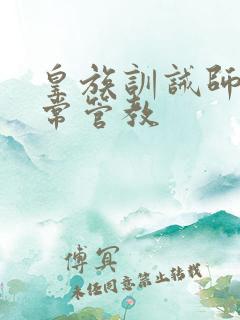 皇族訓誡師
常管教
傅冥
未经同意禁止转载